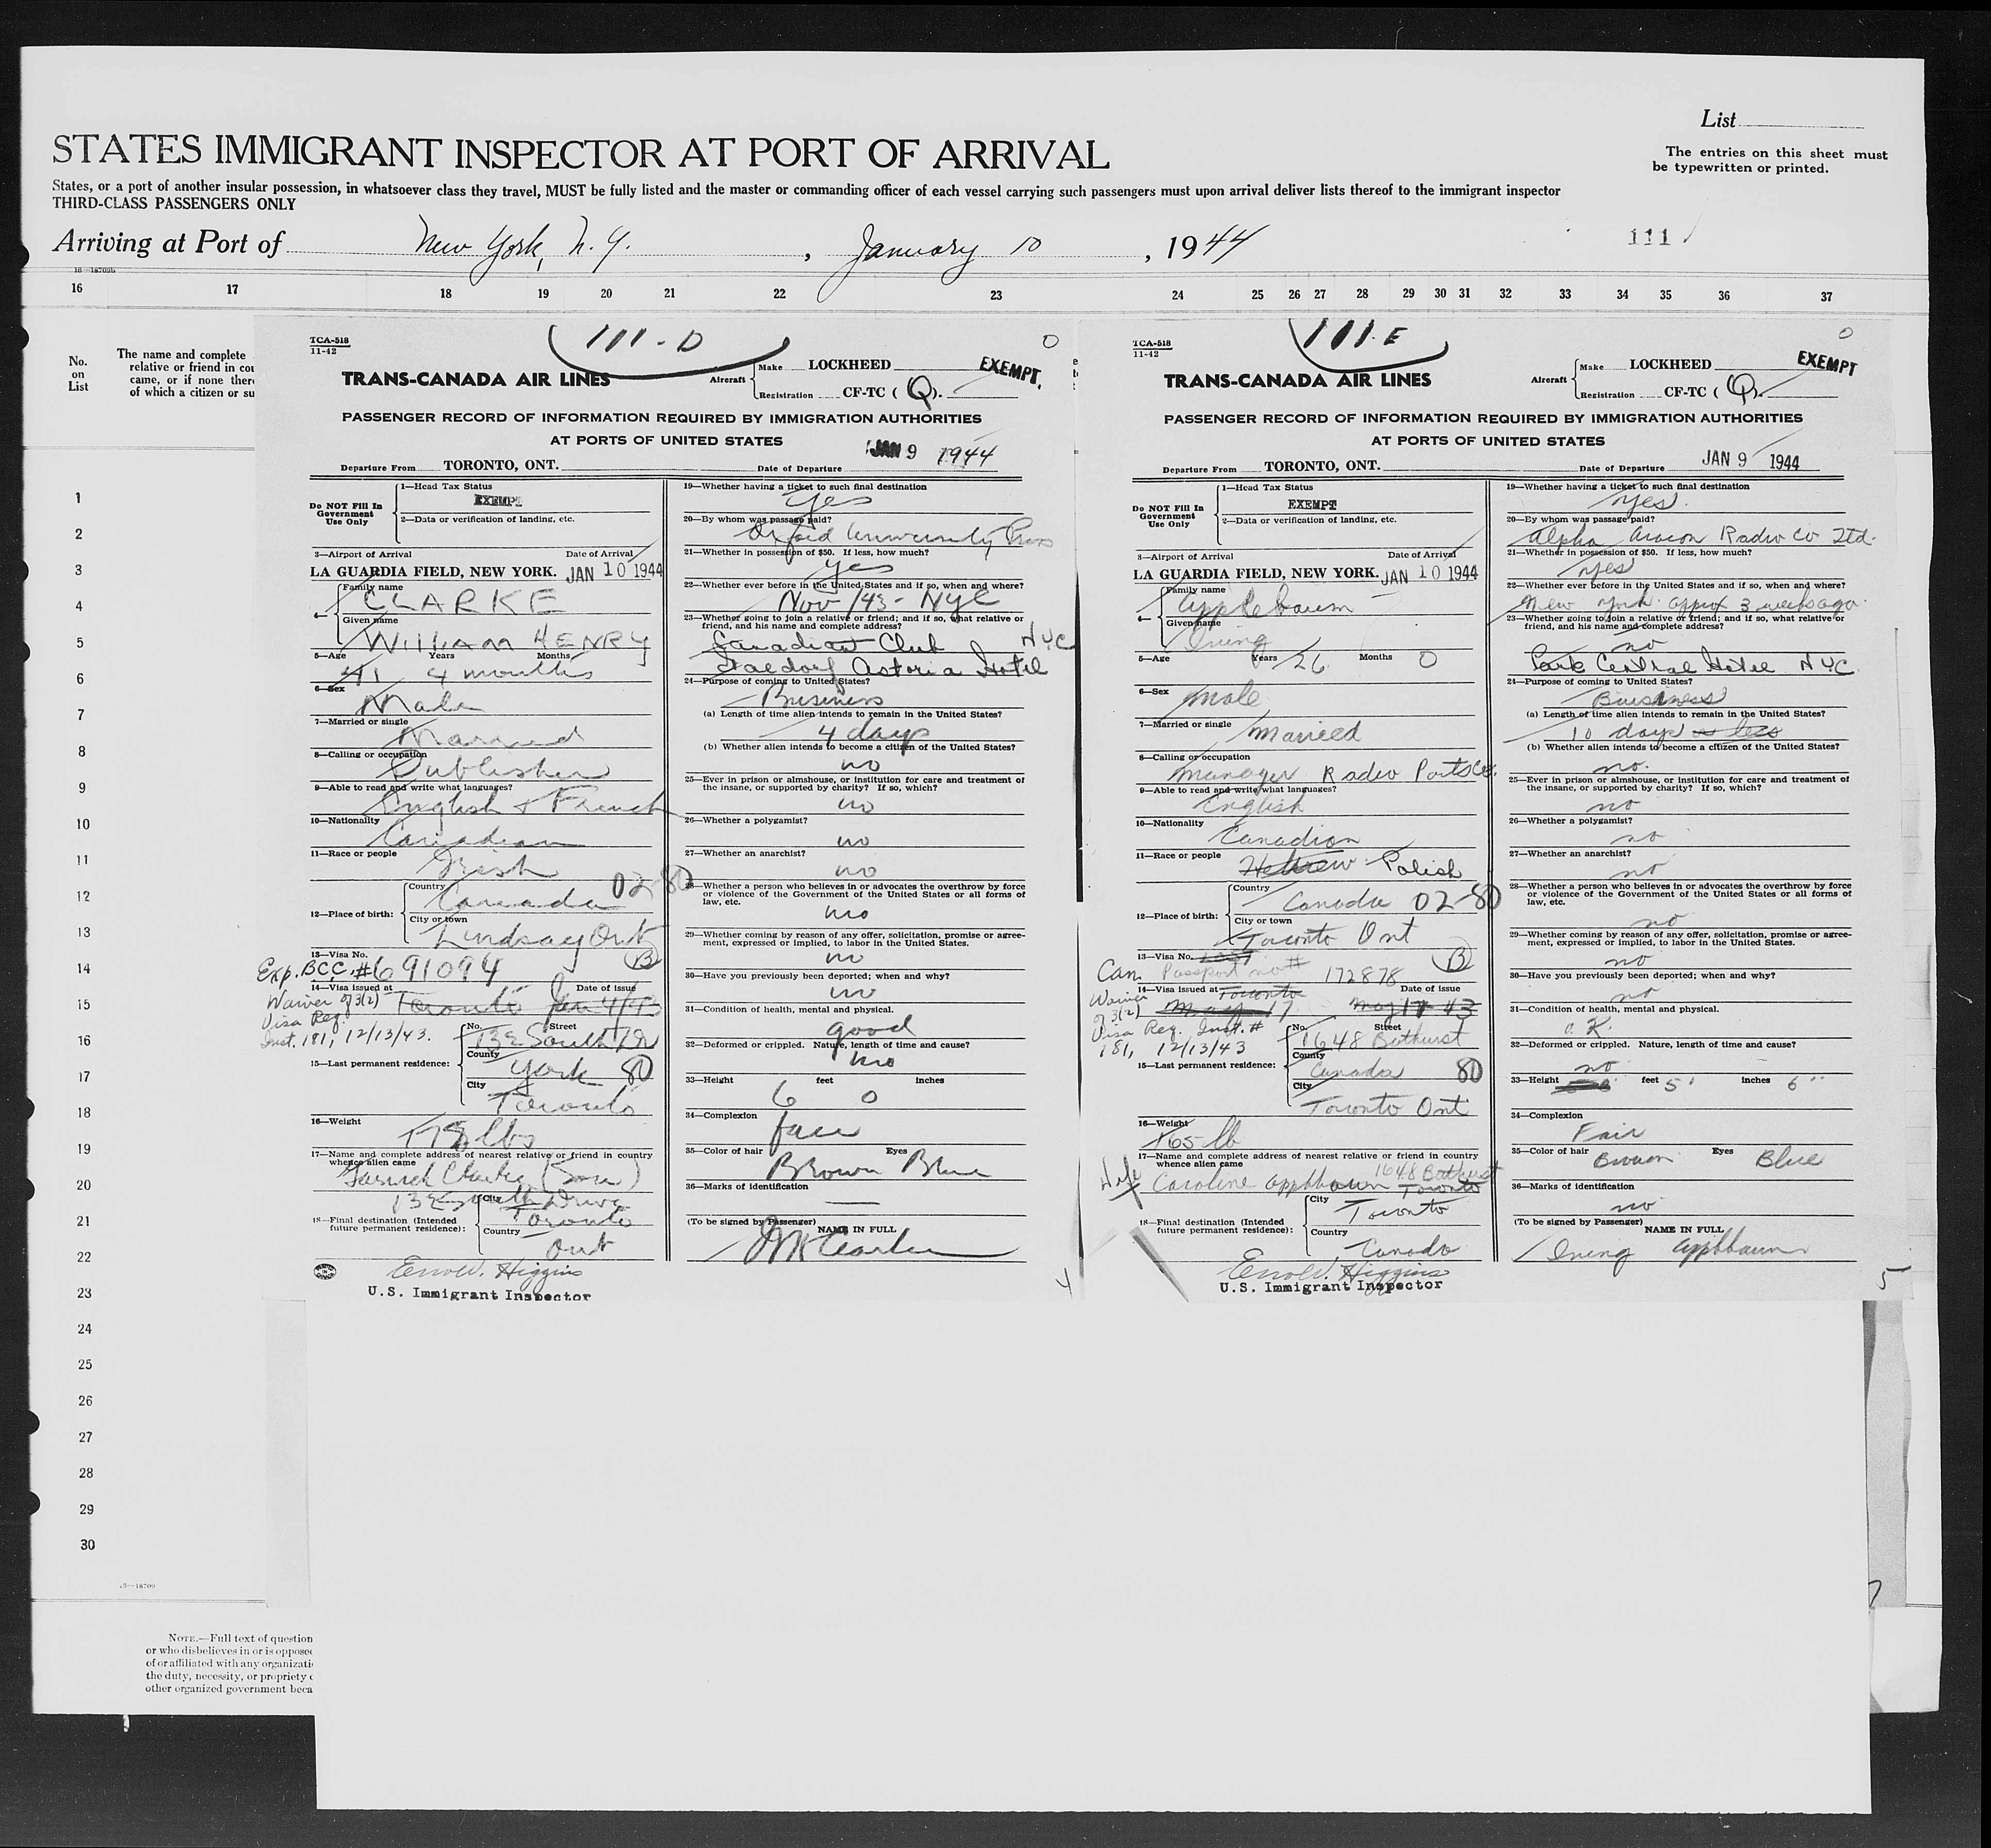 List
The entries on this sheet must
be typewritten or printed.
STATES IMMIGRANT INSPECTOR AT PORT OF ARRIVAL
States, or a port of another insular possession, in whatsoever class they travel, MUST be fully listed and the master or commanding officer of each vessel carrying such passengers must upon arrival deliver lists thereof to the immigrant inspector
THIRD-CLASS PASSENGERS ONLY
Arriving at Port of New York, N.Y. , January 10 , 1944
111
16—18709b
16 17 18 19 20 21 22 23 24 25 26 27 28 29 30 31 32 33 34 35 36 37
No.
on
List
The name and complete
relative or friend in cou
came, or if none ther
of which a citizen or su
1
2
3
4
5
6
7
8
9
10
11
12
13
14
15
16
17
18
19
20
21
22
23
24
25
26
27
28
29
30
16—18709
NOTE.—Full text of question
or who disbelieves in or is opposed
of or affiliated with any organizati
the duty, necessity, or propriety o
other organized government beca
TCA-518
11-42
111-D
0
TRANS-CANADA AIR LINES
Aircraft
Make LOCKHEED
Registration CF-TC (Q).
EXEMPT.
PASSENGER RECORD OF INFORMATION REQUIRED BY IMMIGRATION AUTHORITIES
AT PORTS OF UNITED STATES
Departure From TORONTO, ONT. Date of Departure JAN 9 1944
Do NOT Fill In
Government
Use Only
1—Head Tax Status
EXEMPT
2—Data or verification of landing, etc.
3—Airport of Arrival Date of Arrival
LA GUARDIA FIELD, NEW YORK. JAN 10 1944
4—
Family name
CLARKE
Given name
WILLIAM HENRY
5—Age Years Months
41 4 months
6—Sex
Male
7—Married or single
Married
8—Calling or occupation
Publisher
9—Able to read and write what languages?
English + French
10—Nationality
Canadian
11—Race or people
Irish
12—Place of birth:
Country
Canada 02-80
City or town
Lindsay Ont
13—Visa No.
Exp. BCC. #691094 B
14—Visa issued at Date of issue
Toronto Jan 4/43
Waiver of 3(2)
Visa Reg.
Inst. 181, 12/13/43.
15—Last permanent residence:
No. Street
132 South Dr
County
York 80
City
Toronto
16—Weight
178 lbs
17—Name and complete address of nearest relative or friend in country
whence alien came
Clarke (Son)
South Drive
18—Final destination (Intended
future permanent residence):
City
Toronto
Country
Ont
Higgins
U.S. Immigrant Inspector
19—Whether having a ticket to such final destination
Yes
20—By whom was passage paid?
Oxford University Press
21—Whether in possession of $50. If less, how much?
yes
22—Whether ever before in the United States and if so, when and where?
Nov /43 - NYC
23—Whether going to join a relative or friend; and if so, what relative or
friend, and his name and complete address?
Canadian Club NYC
Waldorf Astoria Hotel
24—Purpose of coming to United States?
Business
(a) Length of time alien intends to remain in the United States?
4 days
(b) Whether alien intends to become a citizen of the United States?
no
25—Ever in prison or almshouse, or institution for care and treatment of
the insane, or supported by charity? If so, which?
no
26—Whether a polygamist?
no
27—Whether an anarchist?
no
28—Whether a person who believes in or advocates the overthrow by force
or violence of the Government of the United States or all forms of
law, etc.
no
29—Whether coming by reason of any offer, solicitation, promise or agree-
ment, expressed or implied, to labor in the United States.
no
30—Have you previously been deported; when and why?
no
31—Condition of health, mental and physical.
good
32—Deformed or crippled. Nature, length of time and cause?
no
33—Height feet inches
6 0
34—Complexion
fair
35—Color of hair Eyes
Brown Blue
36—Marks of identification
—
(To be signed by Passenger) NAME IN FULL
WH Clarke
4
TCA-518
11-42
111-E
0
TRANS-CANADA AIR LINES
Aircraft
Make LOCKHEED
Registration CF-TC (Q).
EXEMPT
PASSENGER RECORD OF INFORMATION REQUIRED BY IMMIGRATION AUTHORITIES
AT PORTS OF UNITED STATES
Departure From TORONTO, ONT. Date of Departure JAN 9 1944
Do NOT Fill In
Government
Use Only
1—Head Tax Status
EXEMPT
2—Data or verification of landing, etc.
3—Airport of Arrival Date of Arrival
LA GUARDIA FIELD, NEW YORK. JAN 10 1944
4—
Family name
Applebaum
Given name
Irving
5—Age Years 26 Months 0
6—Sex
male
7—Married or single
Married
8—Calling or occupation
Manager Radio Parts Co.
9—Able to read and write what languages?
English
10—Nationality
Canadian
11—Race or people
Hebrew Polish
12—Place of birth:
Country
Canada 02-80
City or town
Toronto Ont
13—Visa No.
Can. Passport no # 172878 B
14—Visa issued at Toronto Date of issue
May 17 43
Waiver
of 3(2)
Visa Reg. Inst. #
181, 12/13/43
15—Last permanent residence:
No. Street
1648 Bathurst
County
Canada 80
City
Toronto Ont
16—Weight
165 lb
17—Name and complete address of nearest relative or friend in country
whence alien came
1648 Bathurst
Wife Caroline Applebaum Toronto
18—Final destination (Intended
future permanent residence):
City
Toronto
Country
Canada
Higgins
U.S. Immigrant Inspector
19—Whether having a ticket to such final destination
Yes.
20—By whom was passage paid?
Alpha Aracon Radio Co Ltd.
21—Whether in possession of $50. If less, how much?
Yes
22—Whether ever before in the United States and if so, when and where?
New York. approx 3 weeks ago.
23—Whether going to join a relative or friend; and if so, what relative or
friend, and his name and complete address?
no
Park Central Hotel NYC.
24—Purpose of coming to United States?
Business
(a) Length of time alien intends to remain in the United States?
10 days or less
(b) Whether alien intends to become a citizen of the United States?
no.
25—Ever in prison or almshouse, or institution for care and treatment of
the insane, or supported by charity? If so, which?
no
26—Whether a polygamist?
no
27—Whether an anarchist?
no
28—Whether a person who believes in or advocates the overthrow by force
or violence of the Government of the United States or all forms of
law, etc.
no
29—Whether coming by reason of any offer, solicitation, promise or agree-
ment, expressed or implied, to labor in the United States.
no
30—Have you previously been deported; when and why?
no
31—Condition of health, mental and physical.
O.K.
32—Deformed or crippled. Nature, length of time and cause?
no
33—Height feet 5' inches 6"
34—Complexion
Fair
35—Color of hair Eyes
Brown Blue
36—Marks of identification
no
(To be signed by Passenger) NAME IN FULL
Irving Applebaum
5